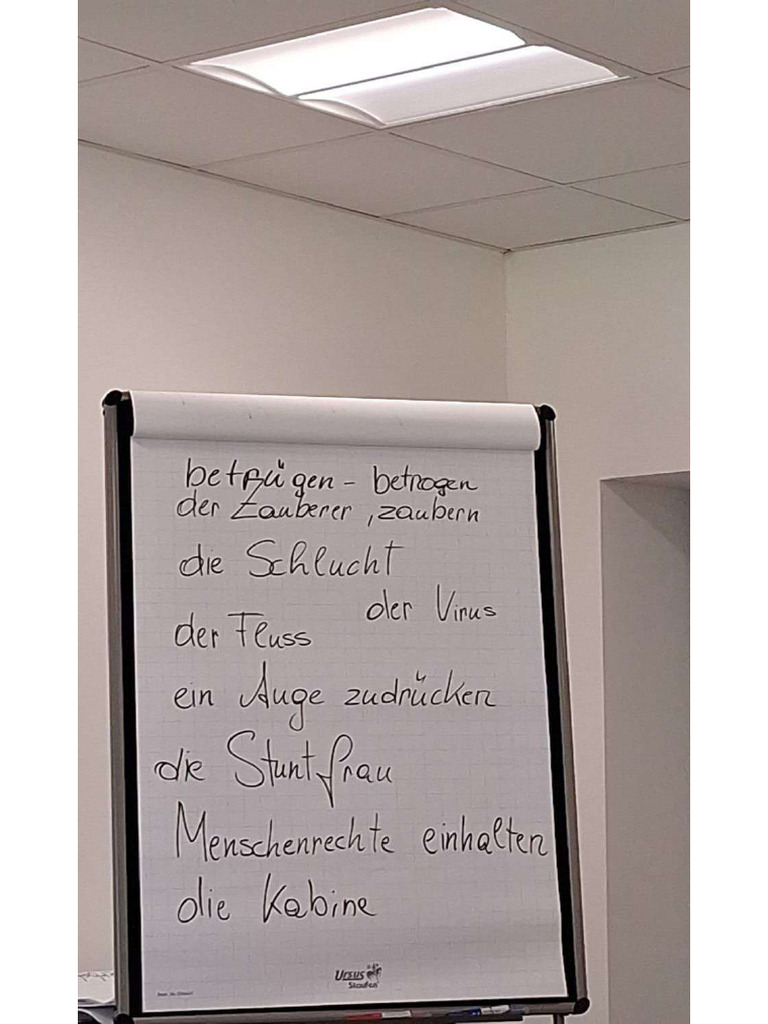 betrügen - betrogen
der Zauberer, zaubern
die Schlucht
der Virus
der Fluss
ein Auge zudrücken
die Stuntfrau
Menschenrechte einhalten
die Kabine
Ursus
Staufen